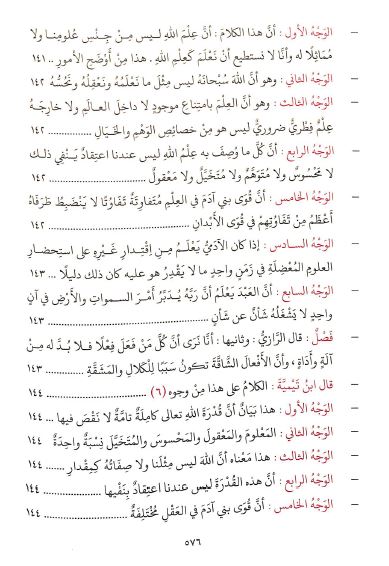 - الوَجْهُ الأول : أنَّ هذا الكلامَ : أنَّ عِلْمَ اللهِ ليس مِنْ جِنْسِ عُلومِنا ولا
مُمَاثِلًا له وأنَّا لا نستطيع أنْ نَعْلَمَ كَعِلْمِ اللهِ . هذا مِنْ أَوْضَحِ الأمورِ .. ١٤١
- الوَجْهُ الثاني : وهو أنَّ اللهَ سُبحانَهُ ليس مِثْل ما نَعْلَمُهُ ونَعْقِلُهُ ونَحُسُّهُ ١٤٢
- الوَجْهُ الثالث : وهو أنَّ العِلْمَ بامتِناعِ موجودٍ لا داخِلَ العالَمِ ولا خارِجَهُ
عِلْمٌ فِطْرِيٌّ ضَرورِيٌّ ليس هو مِنْ خصائِصِ الوَهْمِ والخَيَالِ ............... ١٤٢
- الوَجْهُ الرابع : أنَّ كُلَّ ما وُصِفَ به عِلْمُ اللهِ ليس عندنا اعتِقادٌ يَنْفِي ذلك
لا مَحْسُوسٌ ولا مُتَوَهَّمٌ ولا مُتَخَيَّلٌ ولا مَعْقُولٌ ............... ١٤٢
- الوَجْهُ الخامس : أنَّ قُوَى بني آدَمَ في العِلْمِ مُتَفاوِتَةٌ تَفَاوُتًا لا يَنْضَبِطُ طَرَفَاهُ
أَعْظَمُ مِنْ تَفَاوُتِهِمْ في قُوَى الأَبْدانِ ............... ١٤٢
- الوَجْهُ السادس : إذا كان الآدَمِيُّ يَعْلَمُ مِن اِقْتِدارِ غَيْرِهِ على استِحضارِ
العلومِ المُعْضِلَةِ في زَمَنٍ واحِدٍ ما لا يَقْدِرُ هو عليه كان ذلك دليلًا .. ١٤٣
- الوَجْهُ السابع : أنَّ العَبْدَ يَعْلَمُ أنَّ رَبَّهُ يُدَبِّرُ أَمْرَ السمواتِ والأَرْضِ في آنٍ
واحدٍ لا يَشْغَلُهُ شَأْنٌ عن شَأْنٍ ............... ١٤٣
- فَصْلٌ : قال الرَّازِيُّ : وثانيها : أنَّا نَرَى أنَّ كُلَّ مَنْ فَعَلَ فِعْلًا فلا بُدَّ له مِنْ
آلَةٍ وأَدَاةٍ ، وأنَّ الأَفْعالَ الشَّاقَّةَ تكونُ سَبَبًا لِلْكَلالِ والمَشَقَّةِ ............... ١٤٣
- قال ابنُ تَيْمِيَّةَ : الكلامُ على هذا مِنْ وجوه (٦) ............... ١٤٤
- الوَجْهُ الأول : هذا بَيَانُ أنَّ قُدْرَةَ اللهِ تعالى كامِلَةٌ تامَّةٌ لا نَقْصَ فيها ... ١٤٤
- الوَجْهُ الثاني : المَعْلومُ والمَعْقولُ والمَحْسوسُ والمُتَخَيَّلُ نِسْبَةٌ واحدةٌ ١٤٤
- الوَجْهُ الثالث : هذا مَعْناه أنَّ اللهَ ليس مِثْلَنا ولا صِفَاتُهُ كَمِقْدارِ ...... ١٤٤
- الوَجْهُ الرابع : أنَّ هذه القُدْرَةَ ليس عندنا اعتِقادٌ بِنَفْيِها ............... ١٤٤
- الوَجْهُ الخامس : أنَّ قُوَى بني آدَمَ في العَقْلِ مُخْتَلِفَةٌ ............... ١٤٤
٥٧٦